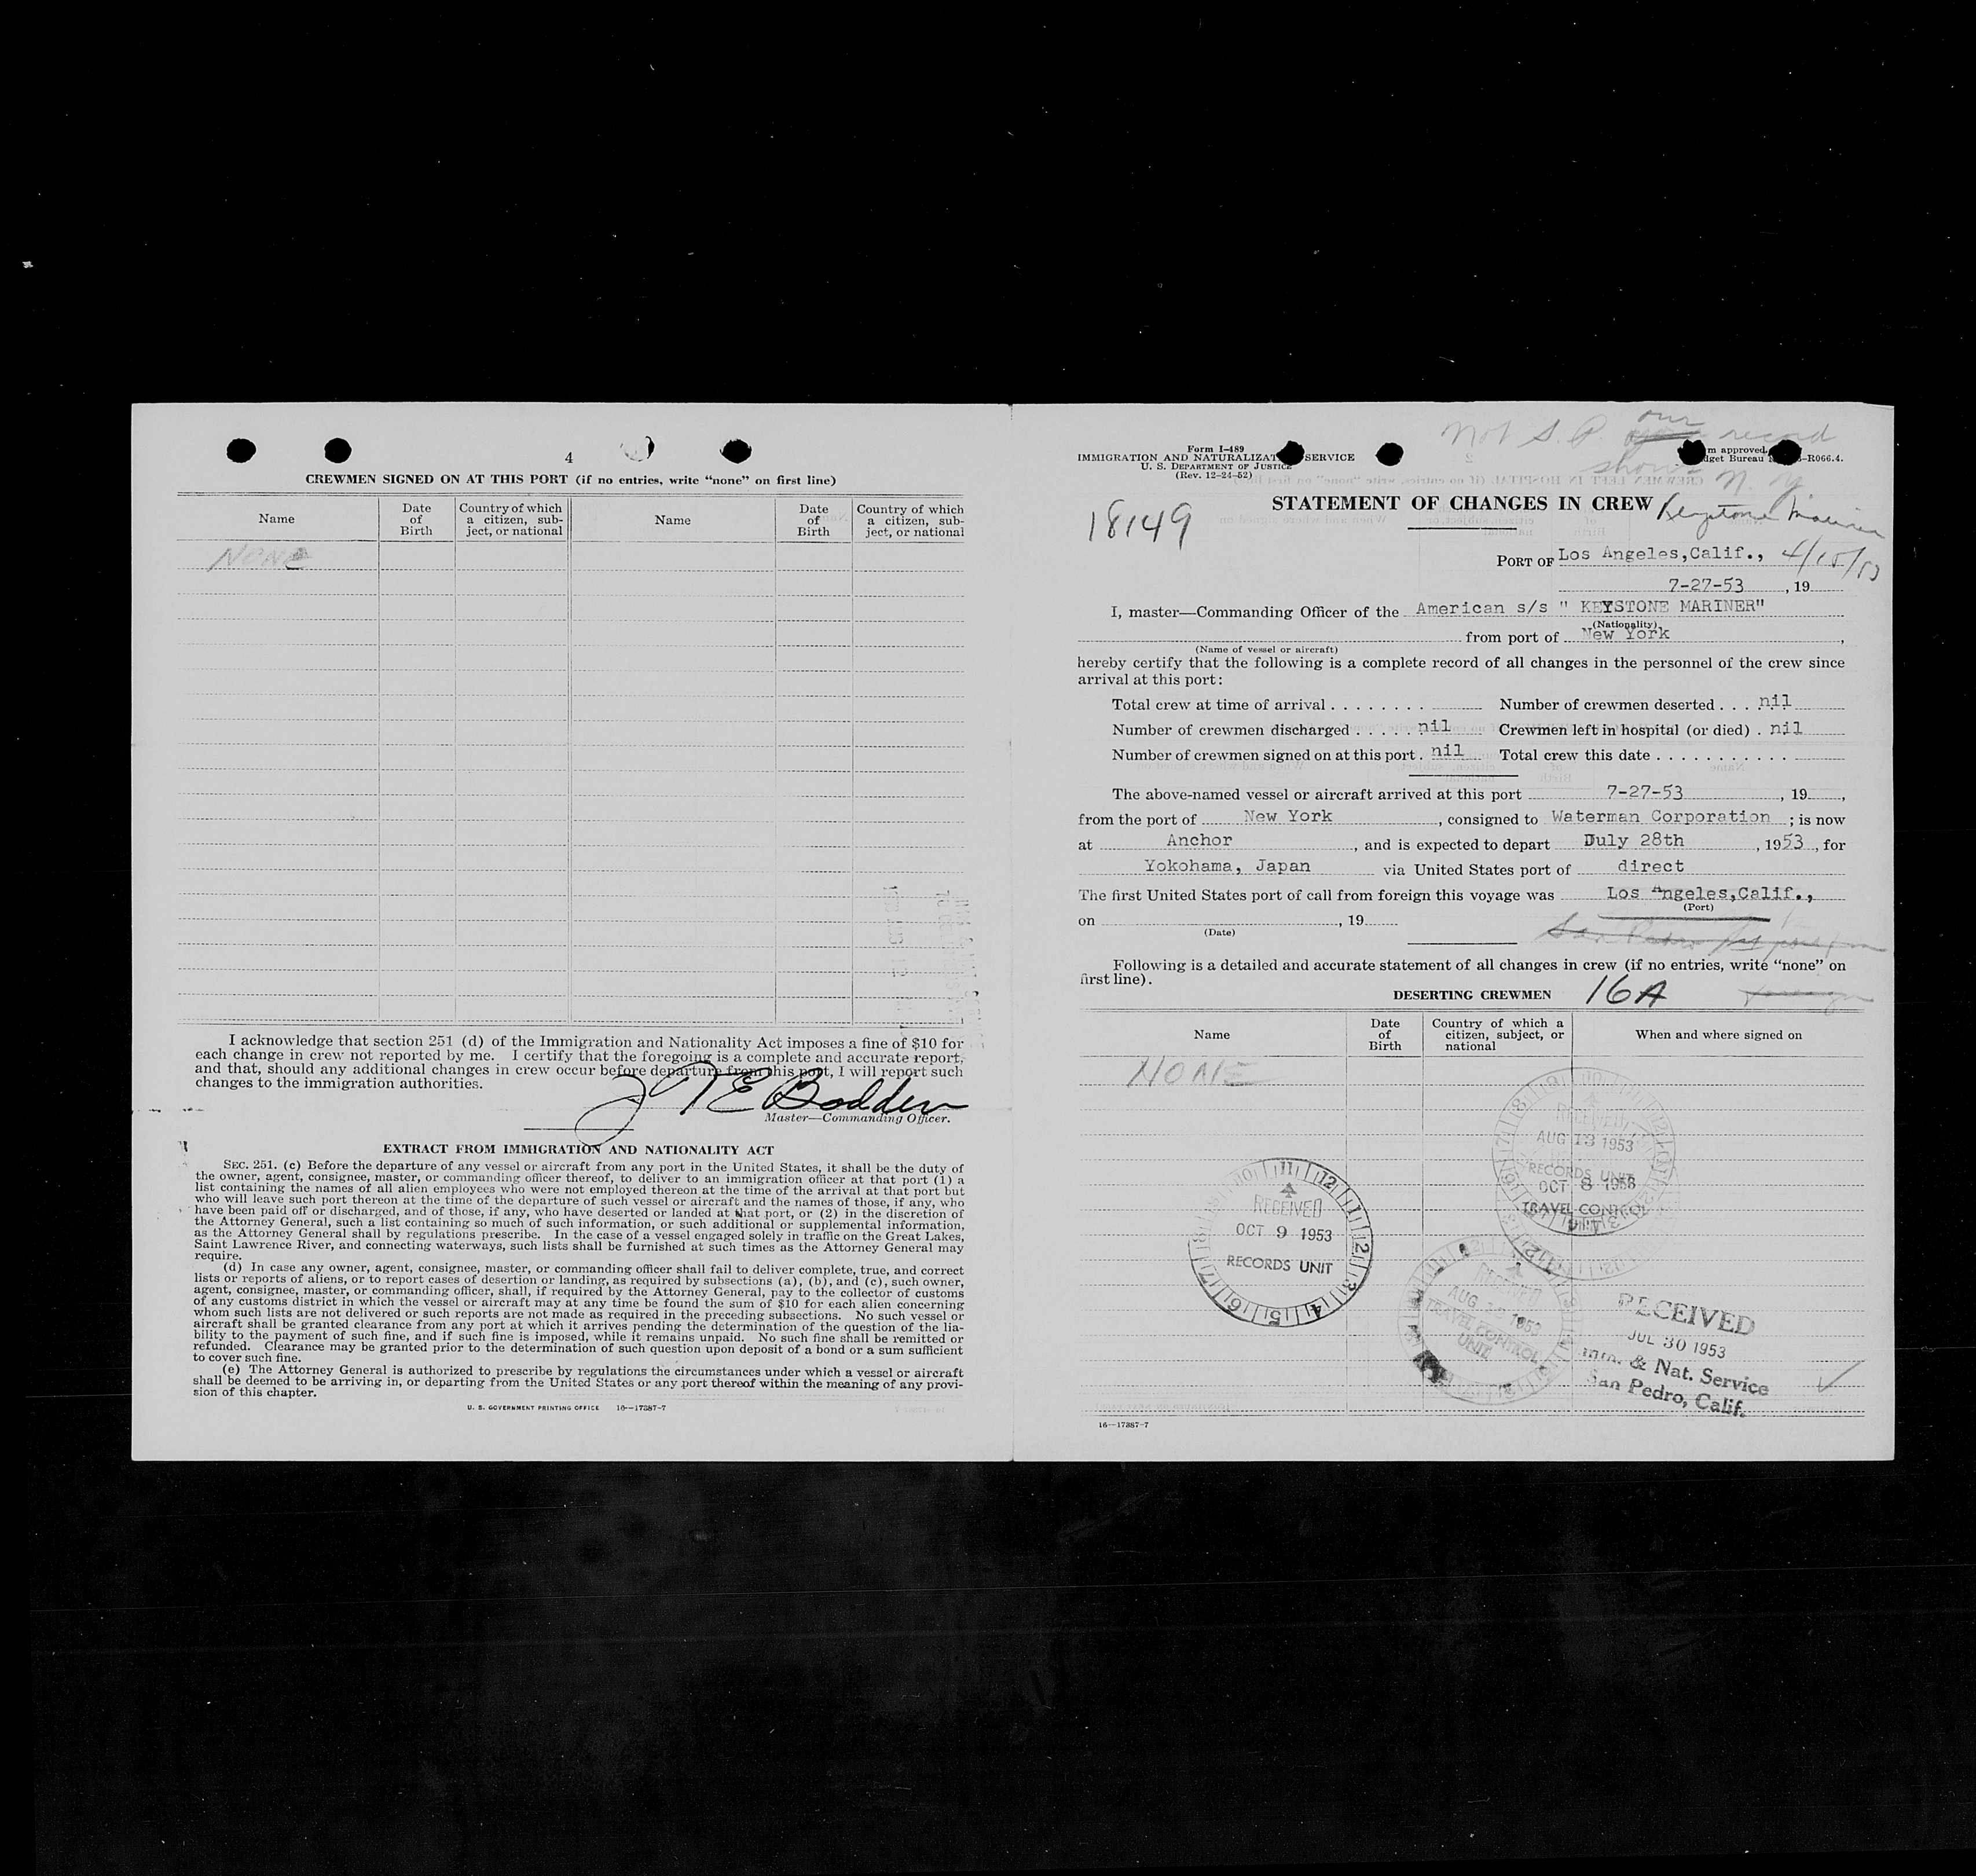 4
CREWMEN SIGNED ON AT THIS PORT (if no entries, write “none” on first line)
Name
Date of Birth
Country of which a citizen, subject, or national
Name
Date of Birth
Country of which a citizen, subject, or national
NONE
I acknowledge that section 251 (d) of the Immigration and Nationality Act imposes a fine of $10 for
each change in crew not reported by me. I certify that the foregoing is a complete and accurate report,
and that, should any additional changes in crew occur before departure from this port, I will report such
changes to the immigration authorities.
E Bodden
Master—Commanding Officer.
EXTRACT FROM IMMIGRATION AND NATIONALITY ACT
SEC. 251. (c) Before the departure of any vessel or aircraft from any port in the United States, it shall be the duty of
the owner, agent, consignee, master, or commanding officer thereof, to deliver to an immigration officer at that port (1) a
list containing the names of all alien employees who were not employed thereon at the time of the arrival at that port but
who will leave such port thereon at the time of the departure of such vessel or aircraft and the names of those, if any, who
have been paid off or discharged, and of those, if any, who have deserted or landed at that port, or (2) in the discretion of
the Attorney General, such a list containing so much of such information, or such additional or supplemental information,
as the Attorney General shall by regulations prescribe. In the case of a vessel engaged solely in traffic on the Great Lakes,
Saint Lawrence River, and connecting waterways, such lists shall be furnished at such times as the Attorney General may
require.
(d) In case any owner, agent, consignee, master, or commanding officer shall fail to deliver complete, true, and correct
lists or reports of aliens, or to report cases of desertion or landing, as required by subsections (a), (b), and (c), such owner,
agent, consignee, master, or commanding officer, shall, if required by the Attorney General, pay to the collector of customs
of any customs district in which the vessel or aircraft may at any time be found the sum of $10 for each alien concerning
whom such lists are not delivered or such reports are not made as required in the preceding subsections. No such vessel or
aircraft shall be granted clearance from any port at which it arrives pending the determination of the question of the lia-
bility to the payment of such fine, and if such fine is imposed, while it remains unpaid. No such fine shall be remitted or
refunded. Clearance may be granted prior to the determination of such question upon deposit of a bond or a sum sufficient
to cover such fine.
(e) The Attorney General is authorized to prescribe by regulations the circumstances under which a vessel or aircraft
shall be deemed to be arriving in, or departing from the United States or any port thereof within the meaning of any provi-
sion of this chapter.
U. S. GOVERNMENT PRINTING OFFICE 16—17387-7
Not S. P. our record
shows N. Y.
Form I-489
IMMIGRATION AND NATURALIZAT SERVICE
U. S. DEPARTMENT OF JUSTICE
(Rev. 12-24-52)
m approved.
dget Bureau -R066.4.
18149
STATEMENT OF CHANGES IN CREW
Keystone Mariner
PORT OF Los Angeles,Calif.,
7-27-53 , 19
I, master—Commanding Officer of the American s/s " KEYSTONE MARINER"
(Nationality)
from port of New York ,
(Name of vessel or aircraft)
hereby certify that the following is a complete record of all changes in the personnel of the crew since
arrival at this port:
Total crew at time of arrival . . . . . . . . Number of crewmen deserted . . . nil
Number of crewmen discharged . . . . . nil Crewmen left in hospital (or died) . nil
Number of crewmen signed on at this port . nil Total crew this date . . . . . . . . . . .
The above-named vessel or aircraft arrived at this port 7-27-53 , 19 ,
from the port of New York , consigned to Waterman Corporation ; is now
at Anchor , and is expected to depart July 28th , 1953 , for
Yokohama, Japan via United States port of direct
The first United States port of call from foreign this voyage was Los Angeles,Calif.,
(Port)
on , 19
(Date)
San Pedro 1st port from
foreign
Following is a detailed and accurate statement of all changes in crew (if no entries, write “none” on
first line).
DESERTING CREWMEN 16A
Name
Date of Birth
Country of which a citizen, subject, or national
When and where signed on
NONE
RECEIVED
AUG 13 1953
RECORDS UNIT
OCT 8 1953
TRAVEL CONTROL
UNIT
RECEIVED
OCT 9 1953
RECORDS UNIT
RECEIVED
AUG 1953
TRAVEL CONTROL
UNIT
RECEIVED
JUL 30 1953
Imm. & Nat. Service
San Pedro, Calif.
16—17387-7